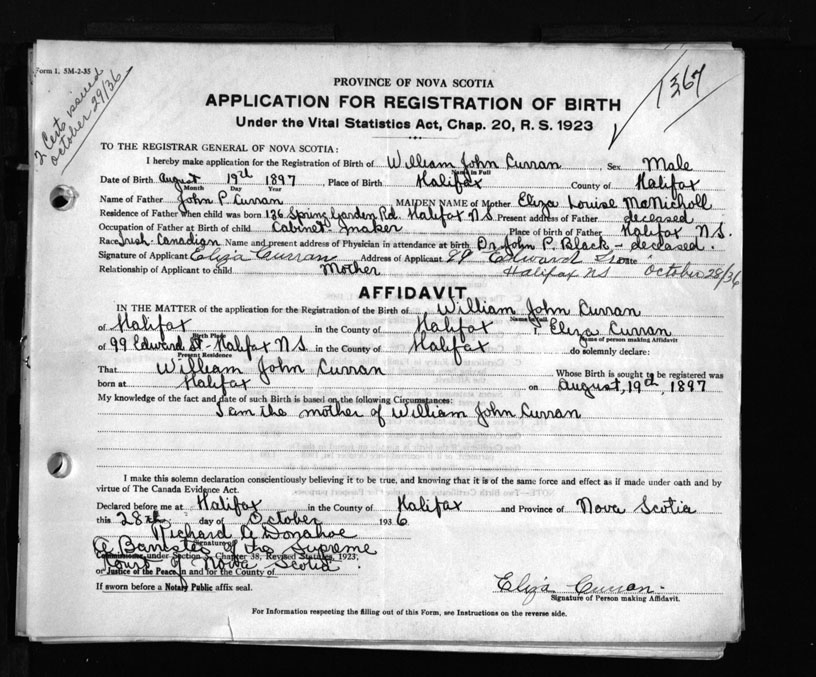 Form 1, 5M-2-35
2 Certs issued
October 29/36
1367
PROVINCE OF NOVA SCOTIA
APPLICATION FOR REGISTRATION OF BIRTH
Under the Vital Statistics Act, Chap. 20, R. S. 1923
TO THE REGISTRAR GENERAL OF NOVA SCOTIA:
I hereby make application for the Registration of Birth of William John Curran, Sex Male
Name in Full
Date of Birth August 19th 1897, Place of Birth Halifax County of Halifax
Month Day Year
Name of Father John P. Curran MAIDEN NAME of Mother Eliza Louise McNicholl
Residence of Father when child was born 136 Spring Garden Rd. Halifax N.S. Present address of Father deceased
Occupation of Father at Birth of child Cabinet-maker Place of birth of Father Halifax N.S.
Race Irish-Canadian Name and present address of Physician in attendance at birth Dr. John P. Black - deceased.
Signature of Applicant Eliza Curran Address of Applicant 99 Edward St Date
Relationship of Applicant to child Mother Halifax NS October 28/36
AFFIDAVIT
IN THE MATTER of the application for the Registration of the Birth of William John Curran
Name in Full
of Halifax in the County of Halifax I, Eliza Curran
Birth Place Name of person making Affidavit
of 99 Edward St - Halifax N.S. in the County of Halifax do solemnly declare:
Present Residence
That William John Curran Whose Birth is sought to be registered was
born at Halifax on August, 19th, 1897
My knowledge of the fact and date of such Birth is based on the following Circumstances:
I am the mother of William John Curran
I make this solemn declaration conscientiously believing it to be true, and knowing that it is of the same force and effect as if made under oath and by
virtue of The Canada Evidence Act.
Declared before me at Halifax in the County of Halifax and Province of Nova Scotia
this 28th day of October 1936
Richard A Donahoe
Signature of
A Barrister of the Supreme
under Section Chapter 38, Revised Statutes, 1923;
Court of Nova Scotia.
or Justice of the Peace in and for the County of
If sworn before a Notary Public affix seal.
Eliza Curran.
Signature of Person making Affidavit.
For Information respecting the filling out of this Form, see Instructions on the reverse side.